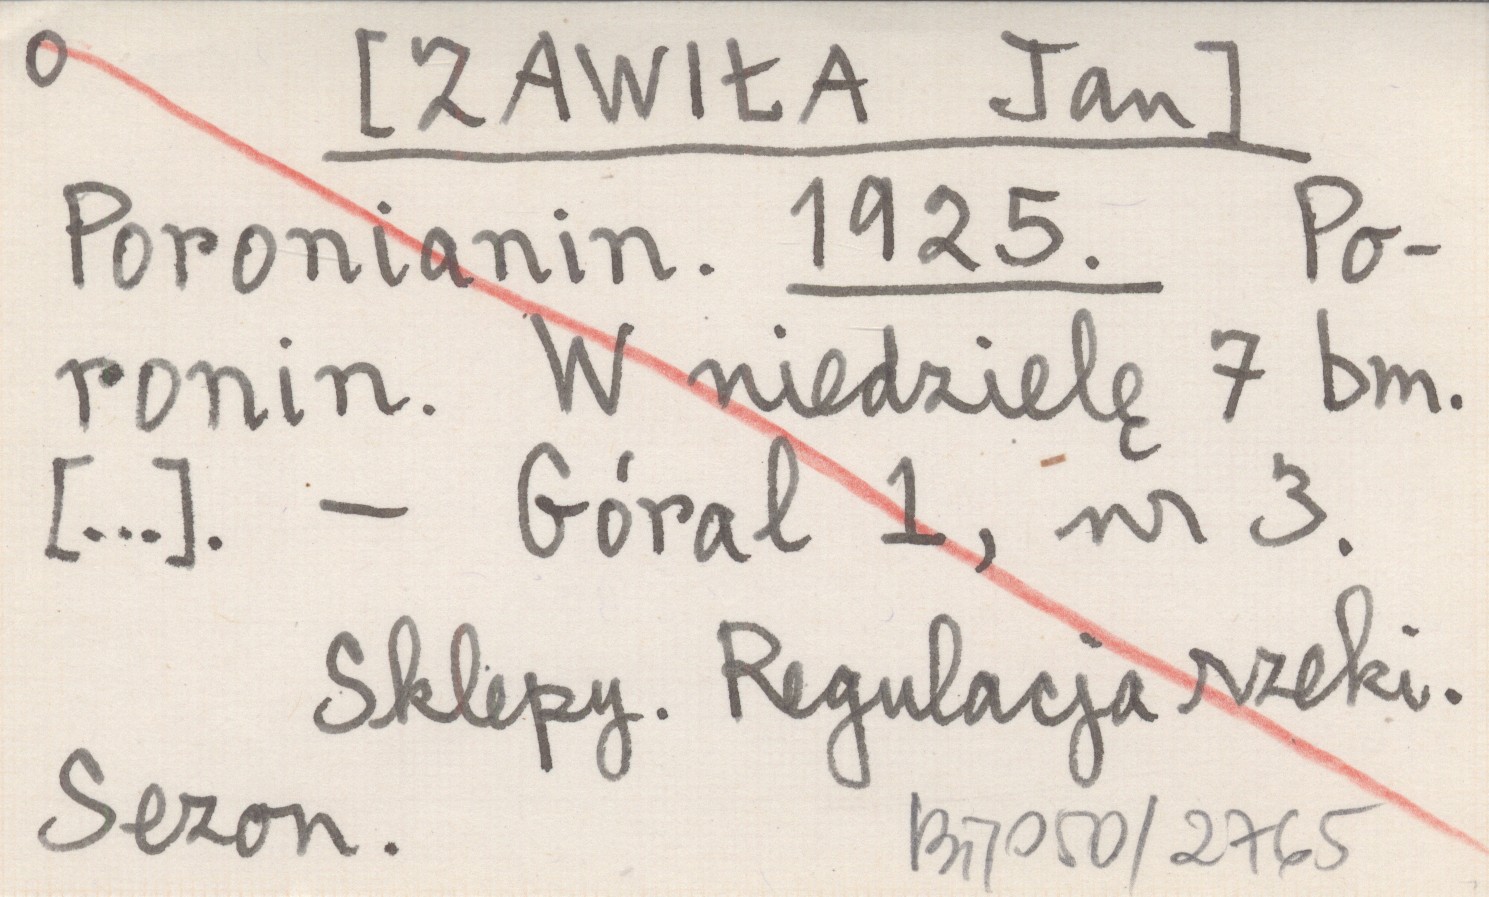 o [ZAWIŁA Jan]
Poronianin. 1925. Po-
ronin. W niedzielę 7 bm.
[...]. — Góral 1, nr 3.
Sklepy. Regulacja rzeki.
Sezon.
2765